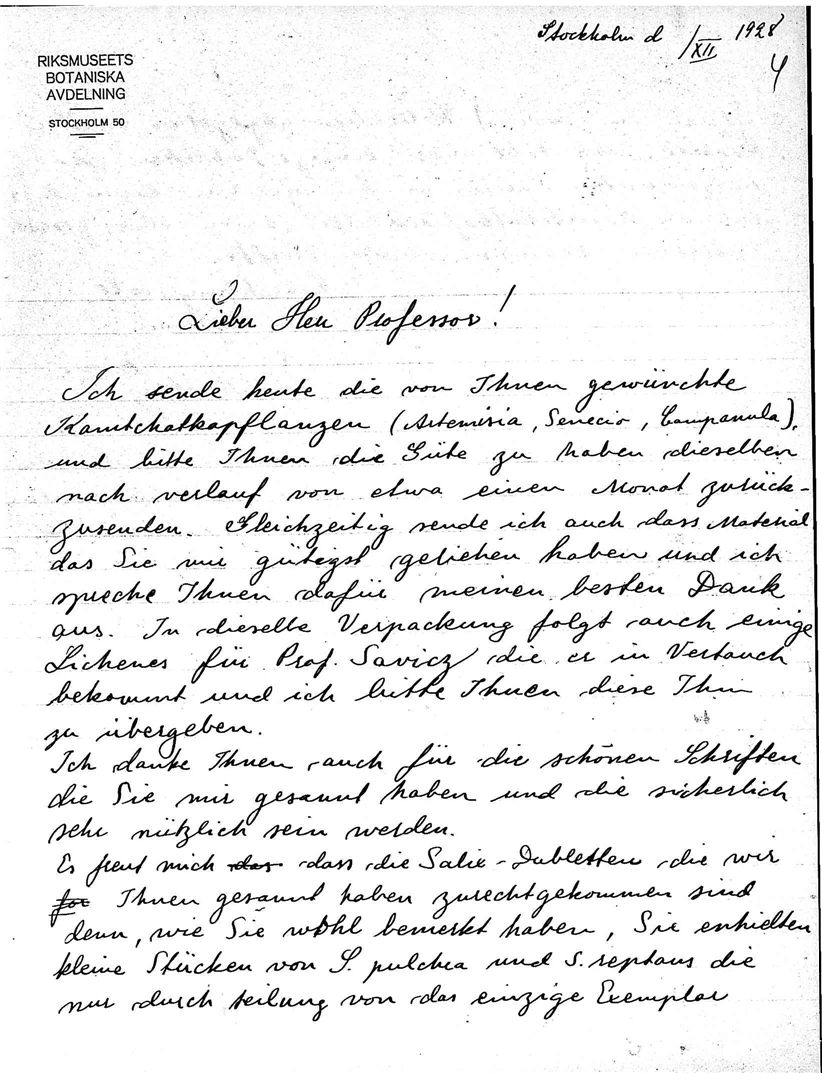 Stockholm d 1/XII 1928
4
RIKSMUSEETS
BOTANISKA
AVDELNING
STOCKHOLM 50
Lieber Herr Professor!
Ich sende heute die von Ihnen gewünchte
Kamtchatkapflanzen (Artemisia, Senecio, Campanula),
und bitte Ihnen die Güte zu haben dieselben
nach verlauf von etwa einen Monat zurück-
zusenden. Gleichzeitig sende ich auch dass Material
das Sie mir gütegst geliehen haben und ich
spreche Ihnen dafür meinen besten Dank
aus. In dieselbe Verpackung folgt auch einige
Lichenes für Prof. Savicz die er in Vertauch
bekommt und ich bitte Ihnen diese Ihm
zu übergeben.
Ich danke Ihnen auch für die schönen Schriften
die Sie mir gesannt haben und die sicherlich
sehr nützlich sein werden.
Es freut mich das dass die Salix-Dubletten die wir
for Ihnen gesannt haben zurechtgekommen sind
denn, wie Sie wohl bemerkt haben, Sie erhielten
kleine Stücken von S. pulchra und S. reptans die
nur durch teilung von das einzige Exemplar